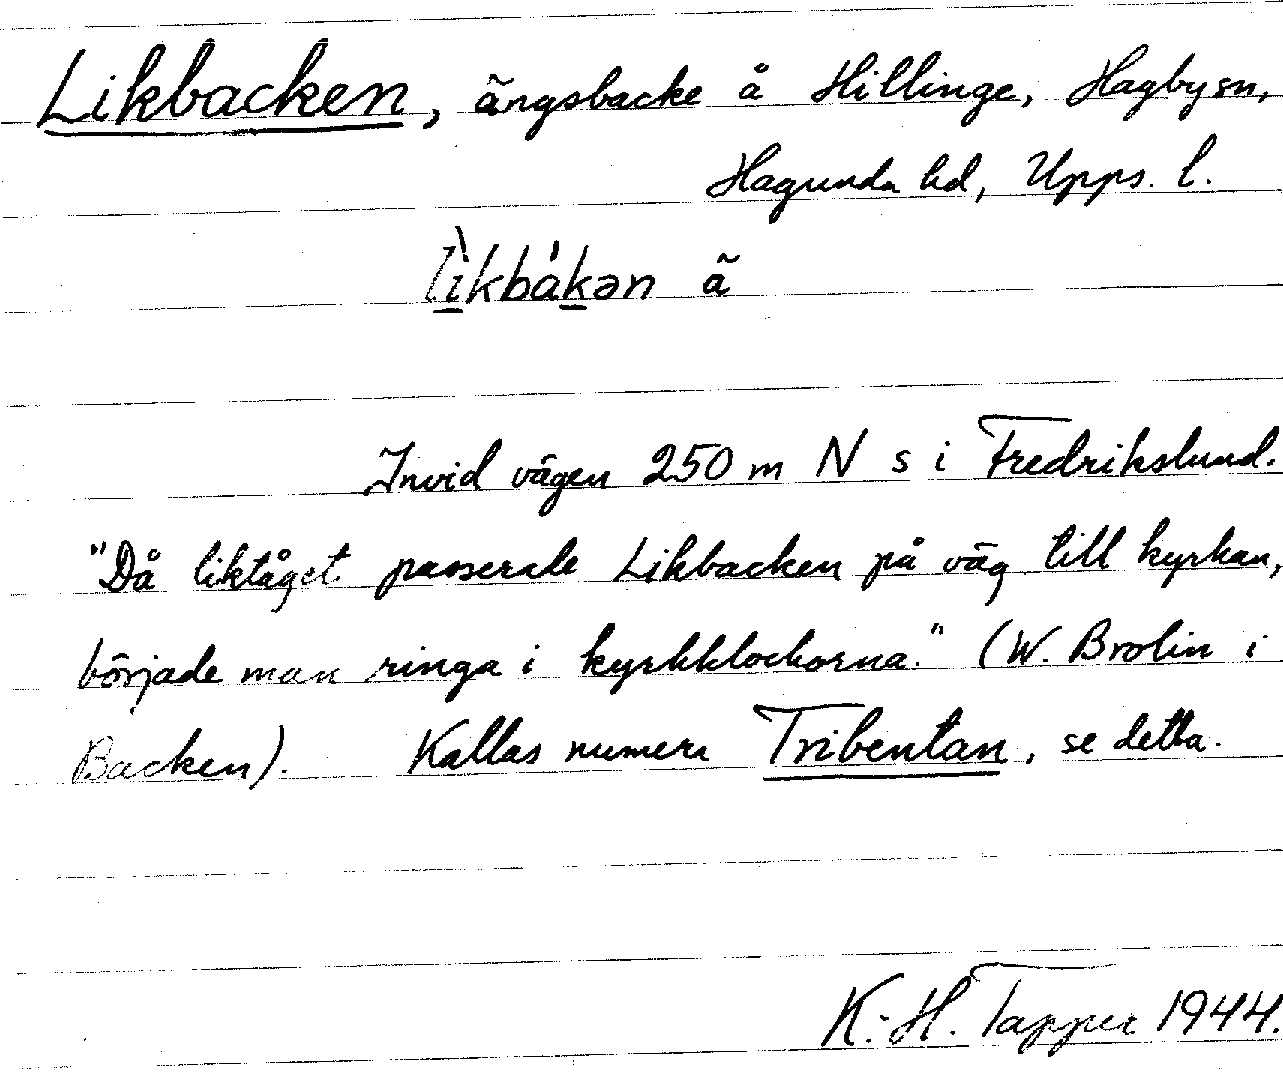 Likbacken, ängsbacke å Hillinge, Hagby sn,
Hagunda hd, Upps. l.
lìkbákən ä
Invid vägen 250 m N s i Fredrikslund.
"Då liktåget passerade Likbacken på väg till kyrkan,
började man ringa i kyrkklockorna." (W. Brolin i
Backen). Kallas numera Tribentan, se detta.
K.-H. Tapper 1944.